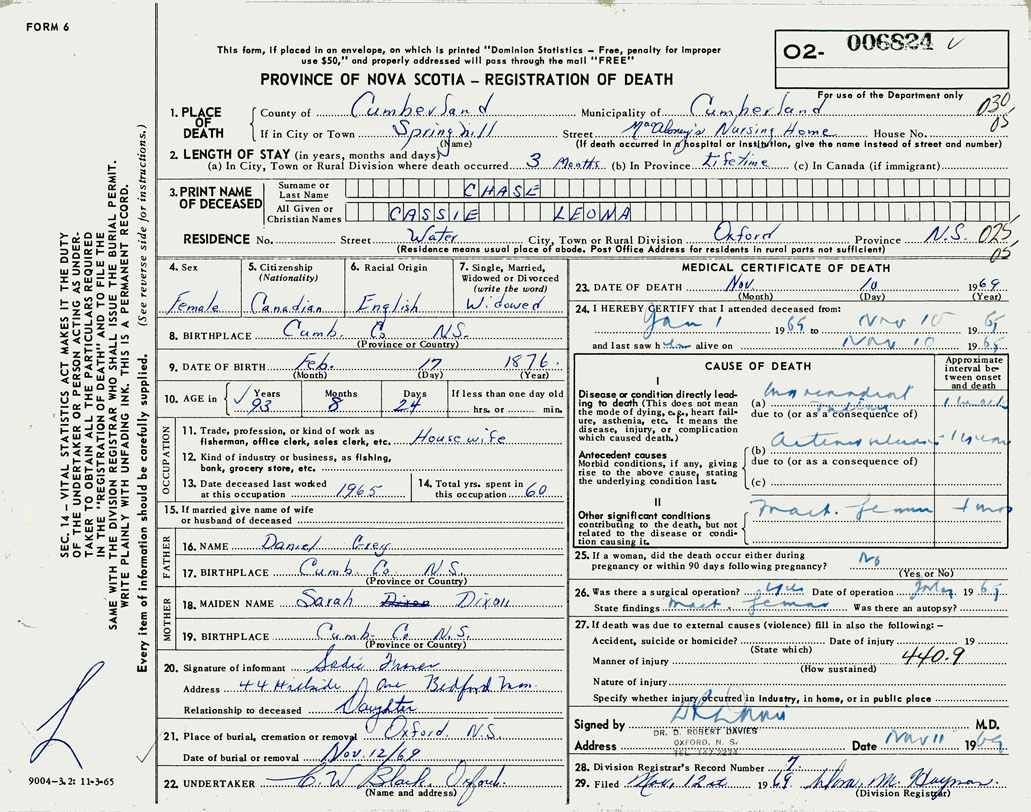 FORM 6
This form, if placed in an envelope, on which is printed "Dominion Statistics – Free, penalty for improper
use $50," and properly addressed will pass through the mail "FREE"
PROVINCE OF NOVA SCOTIA – REGISTRATION OF DEATH
O2- 006824
For use of the Department only
1. PLACE OF DEATH
County of Cumberland Municipality of Cumberland 030
If in City or Town Springhill Street MacAloney's Nursing Home House No. 05
(Name) (If death occurred in hospital or institution, give the name instead of street and number)
2. LENGTH OF STAY (in years, months and days)
(a) In City, Town or Rural Division where death occurred 3 Months (b) In Province Lifetime (c) In Canada (if immigrant)
3. PRINT NAME OF DECEASED
Surname or Last Name CHASE
All Given or Christian Names CASSIE LEONA
RESIDENCE No. Street Water City, Town or Rural Division Oxford Province N.S. 025
(Residence means usual place of abode. Post Office Address for residents in rural parts not sufficient) 05
4. Sex
Female
5. Citizenship
(Nationality)
Canadian
6. Racial Origin
English
7. Single, Married,
Widowed or Divorced
(write the word)
Widowed
8. BIRTHPLACE Cumb. Co N.S.
(Province or Country)
9. DATE OF BIRTH Feb. 17 1876.
(Month) (Day) (Year)
10. AGE in Years Months Days If less than one day old
93 8 24 hrs. or min.
OCCUPATION
11. Trade, profession, or kind of work as
fisherman, office clerk, sales clerk, etc. Housewife
12. Kind of industry or business, as fishing,
bank, grocery store, etc.
13. Date deceased last worked
at this occupation 1965
14. Total yrs. spent in
this occupation 60
15. If married give name of wife
or husband of deceased
FATHER
16. NAME Daniel Grey
17. BIRTHPLACE Cumb. Co N.S.
(Province or Country)
MOTHER
18. MAIDEN NAME Sarah Dixon Dixon
19. BIRTHPLACE Cumb- Co N.S.
(Province or Country)
20. Signature of informant Sadie
Address 44 Hillside Ave Bedford
Relationship to deceased Daughter
21. Place of burial, cremation or removal Oxford. N.S.
Date of burial or removal Nov. 12/69
22. UNDERTAKER C. W Black, Oxford.
(Name and address)
MEDICAL CERTIFICATE OF DEATH
23. DATE OF DEATH Nov. 10 1969
(Month) (Day) (Year)
24. I HEREBY CERTIFY that I attended deceased from:
Jan 1 1969 to Nov 10 1969
and last saw her alive on Nov 10 1969
CAUSE OF DEATH
Approximate
interval between onset
and death
I
Disease or condition directly leading to death (This does not mean
the mode of dying, e.g., heart failure, asthenia, etc. It means the
disease, injury, or complication
which caused death.)
(a) Myocardial
due to (or as a consequence of)
Antecedent causes
Morbid conditions, if any, giving
rise to the above cause, stating
the underlying condition last.
(b)
due to (or as a consequence of)
(c)
II
Other significant conditions
contributing to the death, but not
related to the disease or condition causing it.
Fract. femur
25. If a woman, did the death occur either during
pregnancy or within 90 days following pregnancy? No
(Yes or No)
26. Was there a surgical operation? yes Date of operation 1969.
State findings Fract. femur Was there an autopsy?
27. If death was due to external causes (violence) fill in also the following: –
Accident, suicide or homicide? Date of injury 19
(State which)
Manner of injury 440.9
(How sustained)
Nature of injury
Specify whether injury occurred in industry, in home, or in public place
Signed by M.D.
DR. D. ROBERT DAVIES
OXFORD, N. S.
Address Date Nov 11 1969
28. Division Registrar's Record Number 7
29. Filed Nov. 12st 1969
(Division Registrar)
SEC. 14 – VITAL STATISTICS ACT MAKES IT THE DUTY
OF THE UNDERTAKER OR PERSON ACTING AS UNDER-
TAKER TO OBTAIN ALL THE PARTICULARS REQUIRED
IN THE "REGISTRATION OF DEATH" AND TO FILE THE
SAME WITH THE DIVISION REGISTRAR WHO SHALL ISSUE THE BURIAL PERMIT.
WRITE PLAINLY WITH UNFADING INK. THIS IS A PERMANENT RECORD.
Every item of information should be carefully supplied. (See reverse side for instructions.)
9004–3.2: 11-3-65